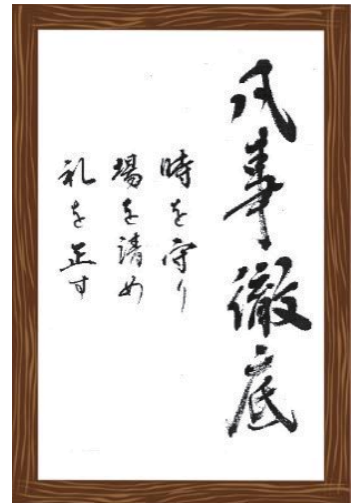 凡事徹底
時を守り
場を清め
礼を正す